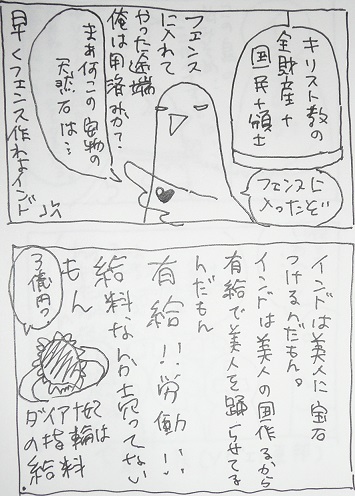 キリスト教の
全財産+
国民+領土
フェンスに
入ったぞ
フェンス
に入れて
やった途端
俺は用済みか?
まぁ何この宝物の
天然石は…
早くフェンス作れよインド
インドは美人に宝石
つけるんだもん。
インドは美人の国作るから
有給で美人を踊らせてる
んだもん
有給!!労働!!
給料なんか貰ってない
もん
3億円っ
妃は
ダイア指輪
の給料